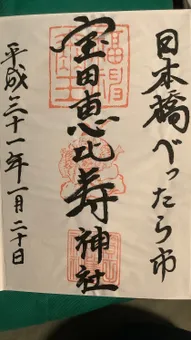 日本橋べったら市
宝田恵比寿神社
平成三十一年一月二十日